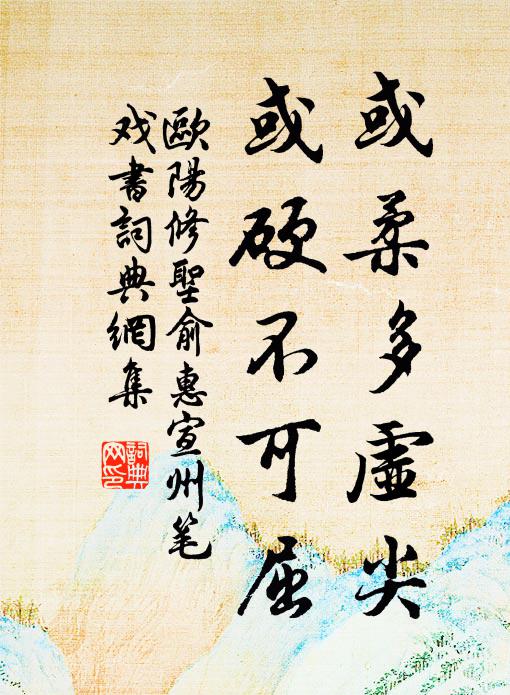 或柔多虛尖
或硬不可屈
歐陽修聖俞惠宣州笔
戏書詞典網集
詞典
网印